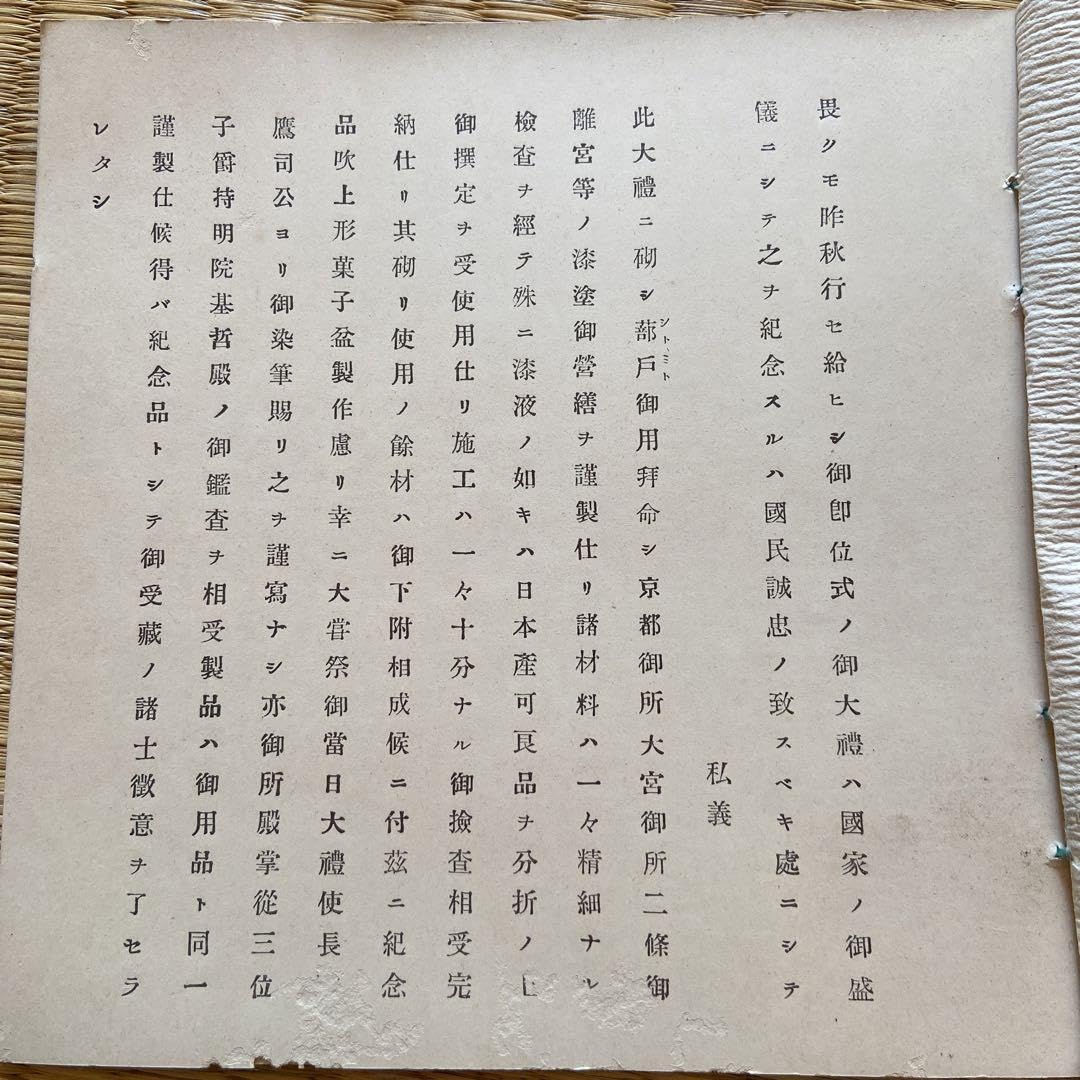 畏クモ昨秋行セ給ヒシ御卽位式ノ御大禮ハ國家ノ御盛
儀ニシテ之ヲ紀念スルハ國民誠忠ノ致スベキ處ニシテ
私義
此大禮ニ砌シ蔀戸御用拜命シ京都御所大宮御所二條御
シトミト
離宮等ノ漆塗御營繕ヲ謹製仕リ諸材料ハ一々精細ナル
檢査ヲ經テ殊ニ漆液ノ如キハ日本產可良品ヲ分折ノ上
御撰定ヲ受使用仕リ施工ハ一々十分ナル御撿査相受完
納仕リ其砌リ使用ノ餘材ハ御下附相成候ニ付茲ニ紀念
品吹上形菓子盆製作慮リ幸ニ大甞祭御當日大禮使長
鷹司公ヨリ御染筆賜リ之ヲ謹寫ナシ亦御所殿掌從三位
子爵持明院基哲殿ノ御鑑査ヲ相受製品ハ御用品ト同一
謹製仕候得バ紀念品トシテ御受藏ノ諸士徵意ヲ了セラ
レタシ